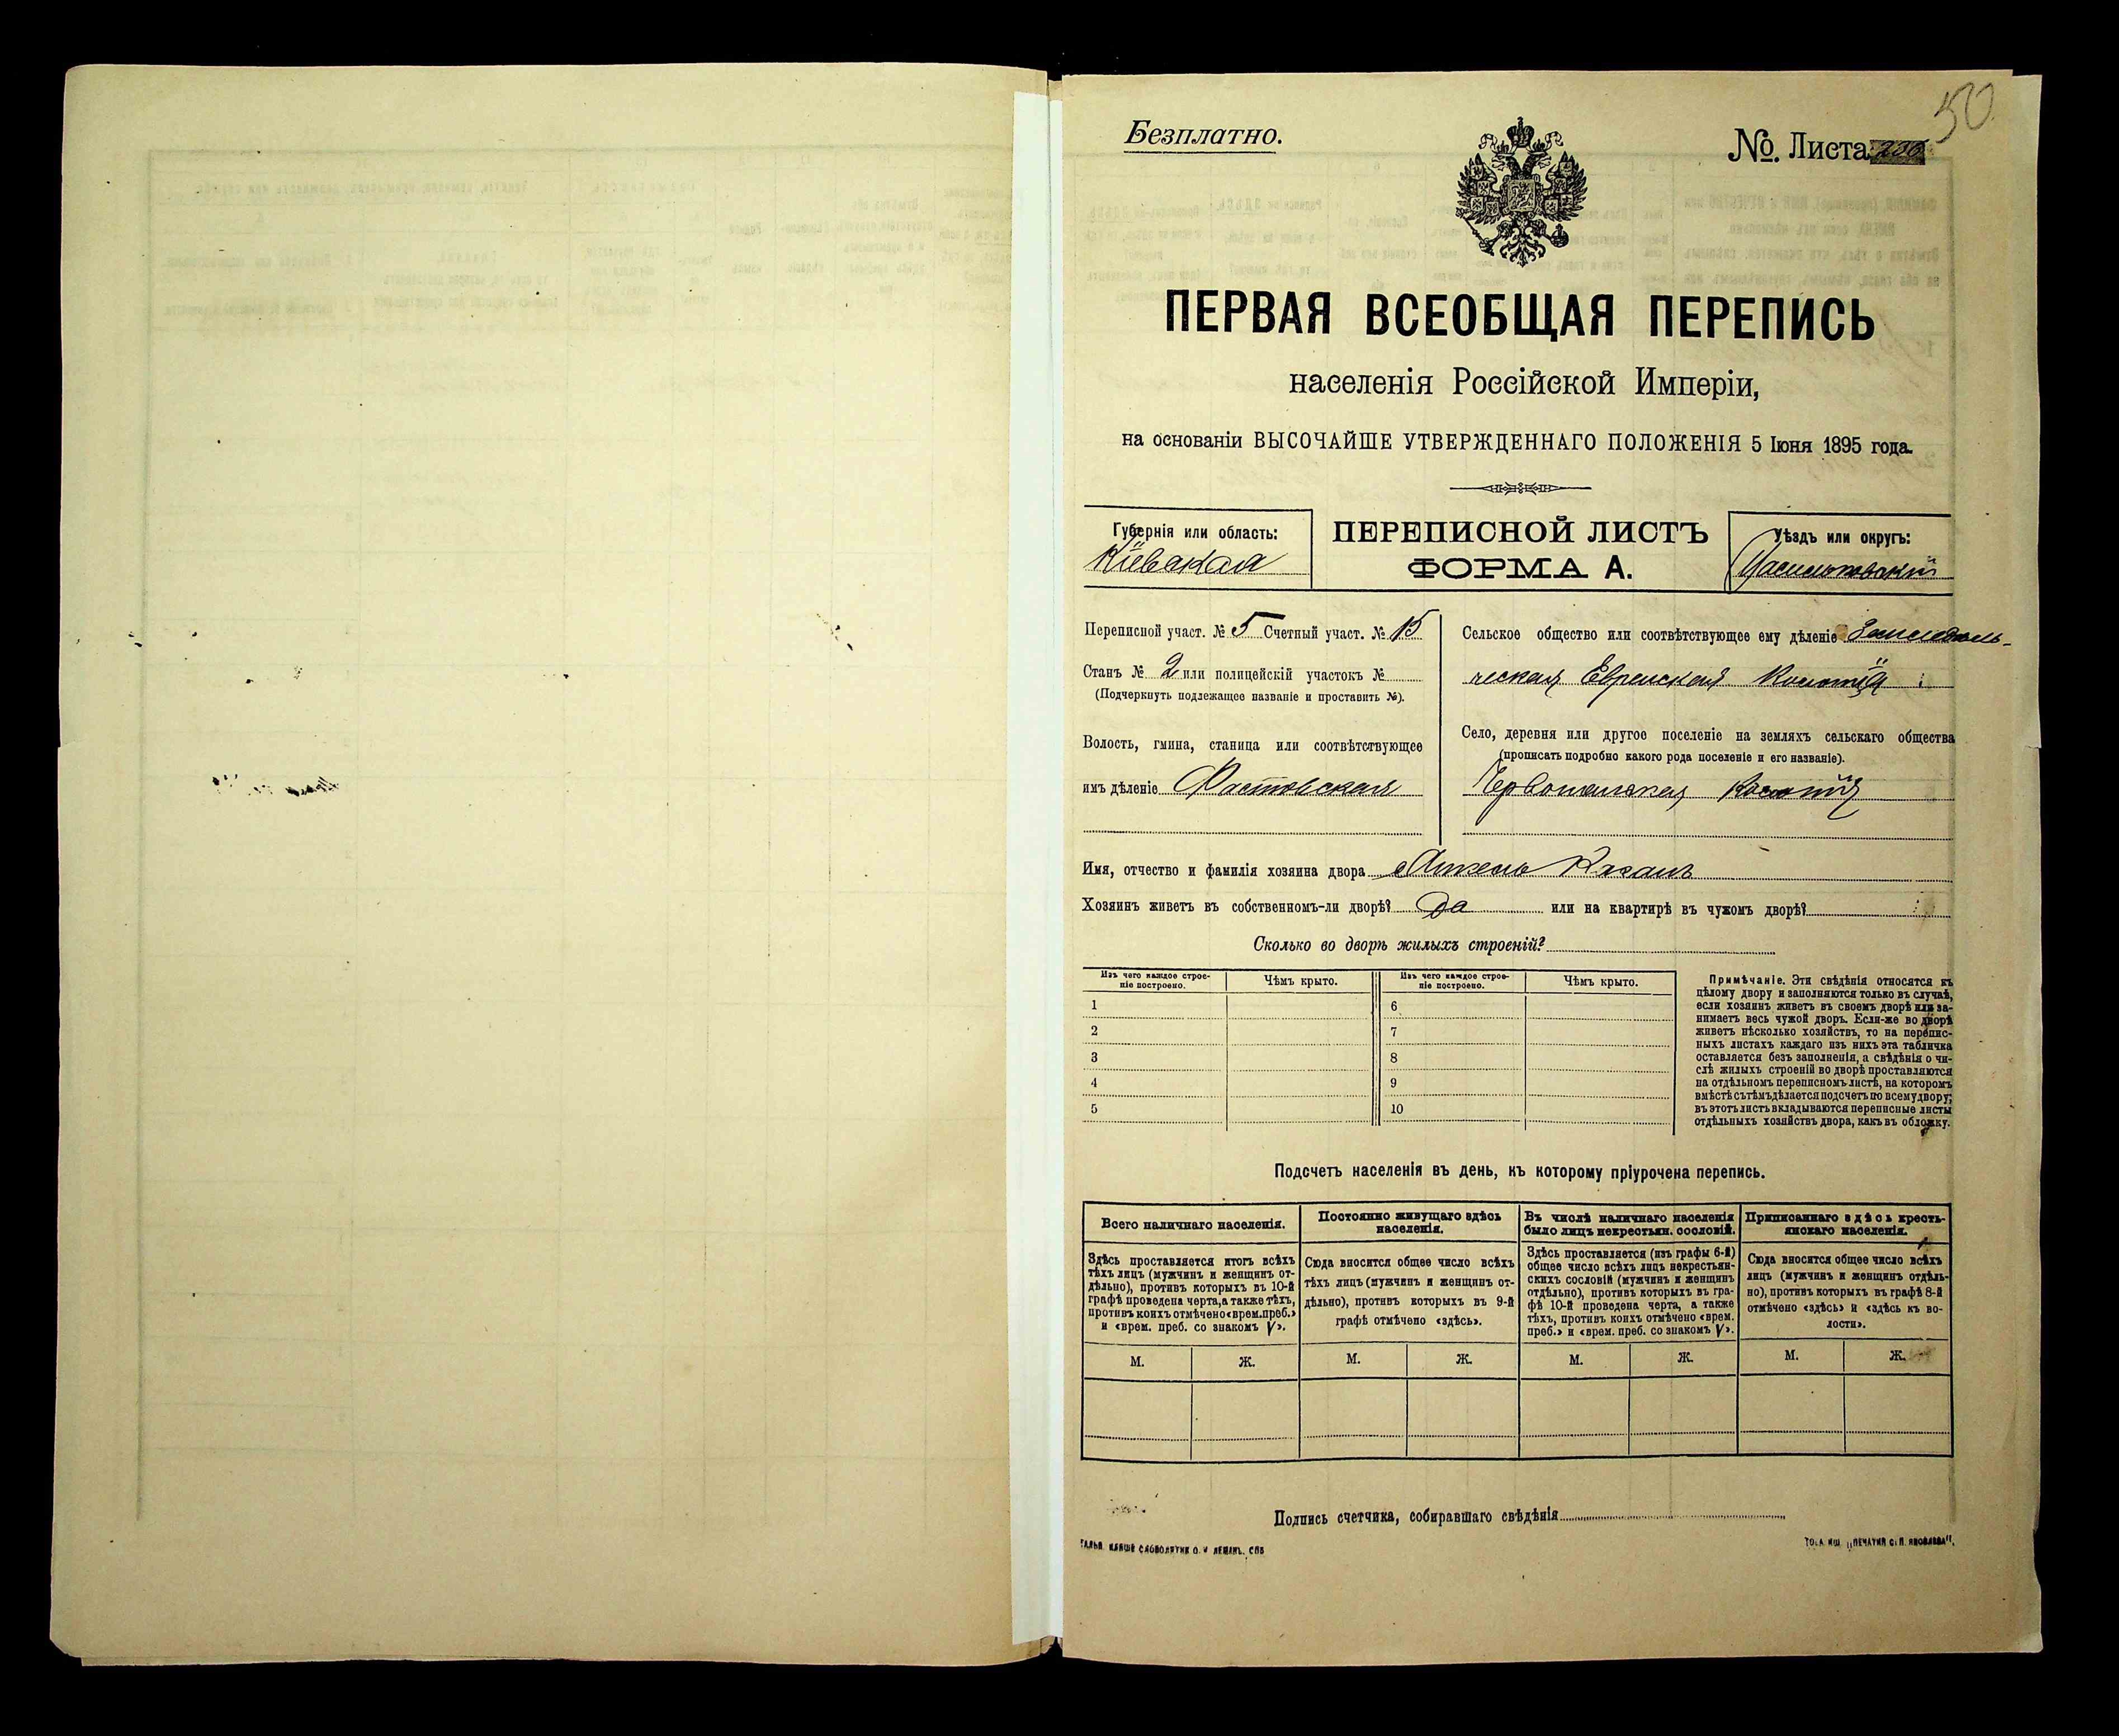 50
Безплатно.
№. Листа
ПЕРВАЯ ВСЕОБЩАЯ ПЕРЕПИСЬ
населенія Россійской Имперіи,
на основаніи ВЫСОЧАЙШЕ УТВЕРЖДЕННАГО ПОЛОЖЕНІЯ 5 Іюня 1895 года.
Губернія или область:
Кіевская
ПЕРЕПИСНОЙ ЛИСТЪ
ФОРМА А.
Уѣздъ или округъ:
Васильковскій
Переписной участ. № 5 Счетный участ. № 15
Станъ № 2 или полицейскій участокъ №
(Подчеркнуть подлежащее названіе и проставить №).
Волость, гмина, станица или соотвѣтствующее
имъ дѣленіе Фастовская
Сельское общество или соотвѣтствующее ему дѣленіе Земледѣль-
ческая Еврейская Колонія
Село, деревня или другое поселеніе на земляхъ сельскаго общества
(прописать подробно какого рода поселеніе и его названіе).
Червонянская Колонія
Имя, отчество и фамилія хозяина двора Каганъ
Хозяинъ живетъ въ собственномъ-ли дворѣ? Да или на квартирѣ въ чужомъ дворѣ?
Сколько во дворѣ жилыхъ строеній?
Изъ чего каждое строе-
ніе построено.
Чѣмъ крыто.
Изъ чего каждое строе-
ніе построено.
Чѣмъ крыто.
1
6
2
7
3
8
4
9
5
10
Примѣчаніе. Эти свѣдѣнія относятся къ
цѣлому двору и заполняются только въ случаѣ,
если хозяинъ живетъ въ своемъ дворѣ или за-
нимаетъ весь чужой дворъ. Если-же во дворѣ
живетъ нѣсколько хозяйствъ, то на перепис-
ныхъ листахъ каждаго изъ нихъ эта табличка
оставляется безъ заполненія, а свѣдѣнія о чи-
слѣ жилыхъ строеній во дворѣ проставляются
на отдѣльномъ переписномъ листѣ, на которомъ
вмѣстѣ съ тѣмъ дѣлается подсчетъ по всему двору;
въ этотъ листъ вкладываются переписные листы
отдѣльныхъ хозяйствъ двора, какъ въ обложку.
Подсчетъ населенія въ день, къ которому пріурочена перепись.
Всего наличнаго населенія.
Здѣсь проставляется итогъ всѣхъ
тѣхъ лицъ (мужчинъ и женщинъ от-
дѣльно), противъ которыхъ въ 10-й
графѣ проведена черта, а также тѣхъ,
противъ коихъ отмѣчено «врем. преб.»
и «врем. преб. со знакомъ V».
Постоянно живущаго здѣсь
населенія.
Сюда вносится общее число всѣхъ
тѣхъ лицъ (мужчинъ и женщинъ от-
дѣльно), противъ которыхъ въ 9-й
графѣ отмѣчено «здѣсь».
Въ числѣ наличнаго населенія
было лицъ некрестьян. сословій.
Здѣсь проставляется (изъ графы 6-й)
общее число всѣхъ лицъ некрестьян-
скихъ сословій (мужчинъ и женщинъ
отдѣльно), противъ которыхъ въ гра-
фѣ 10-й проведена черта, а также
тѣхъ, противъ коихъ отмѣчено «врем.
преб.» и «врем. преб. со знакомъ V».
Приписаннаго здѣсь кресть-
янскаго населенія.
Сюда вносится общее число всѣхъ
лицъ (мужчинъ и женщинъ отдѣль-
но), противъ которыхъ въ графѣ 8-й
отмѣчено «здѣсь» и «здѣсь къ во-
лости».
М. Ж. М. Ж. М. Ж. М. Ж.
Подпись счетчика, собиравшаго свѣдѣнія